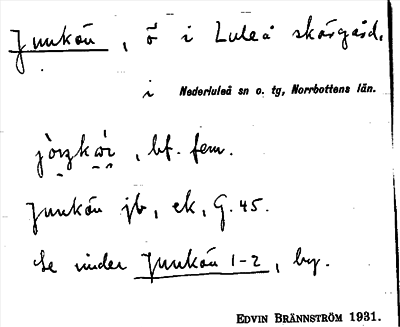 Junkön, ö i Luleå skärgård.
i Nederluleå sn o. tg, Norrbottens län.
, bf. fem.
Junkön jb, ek, G. 45.
Se under Junkön 1-2, by.
EDVIN BRÄNNSTRÖM 1931.